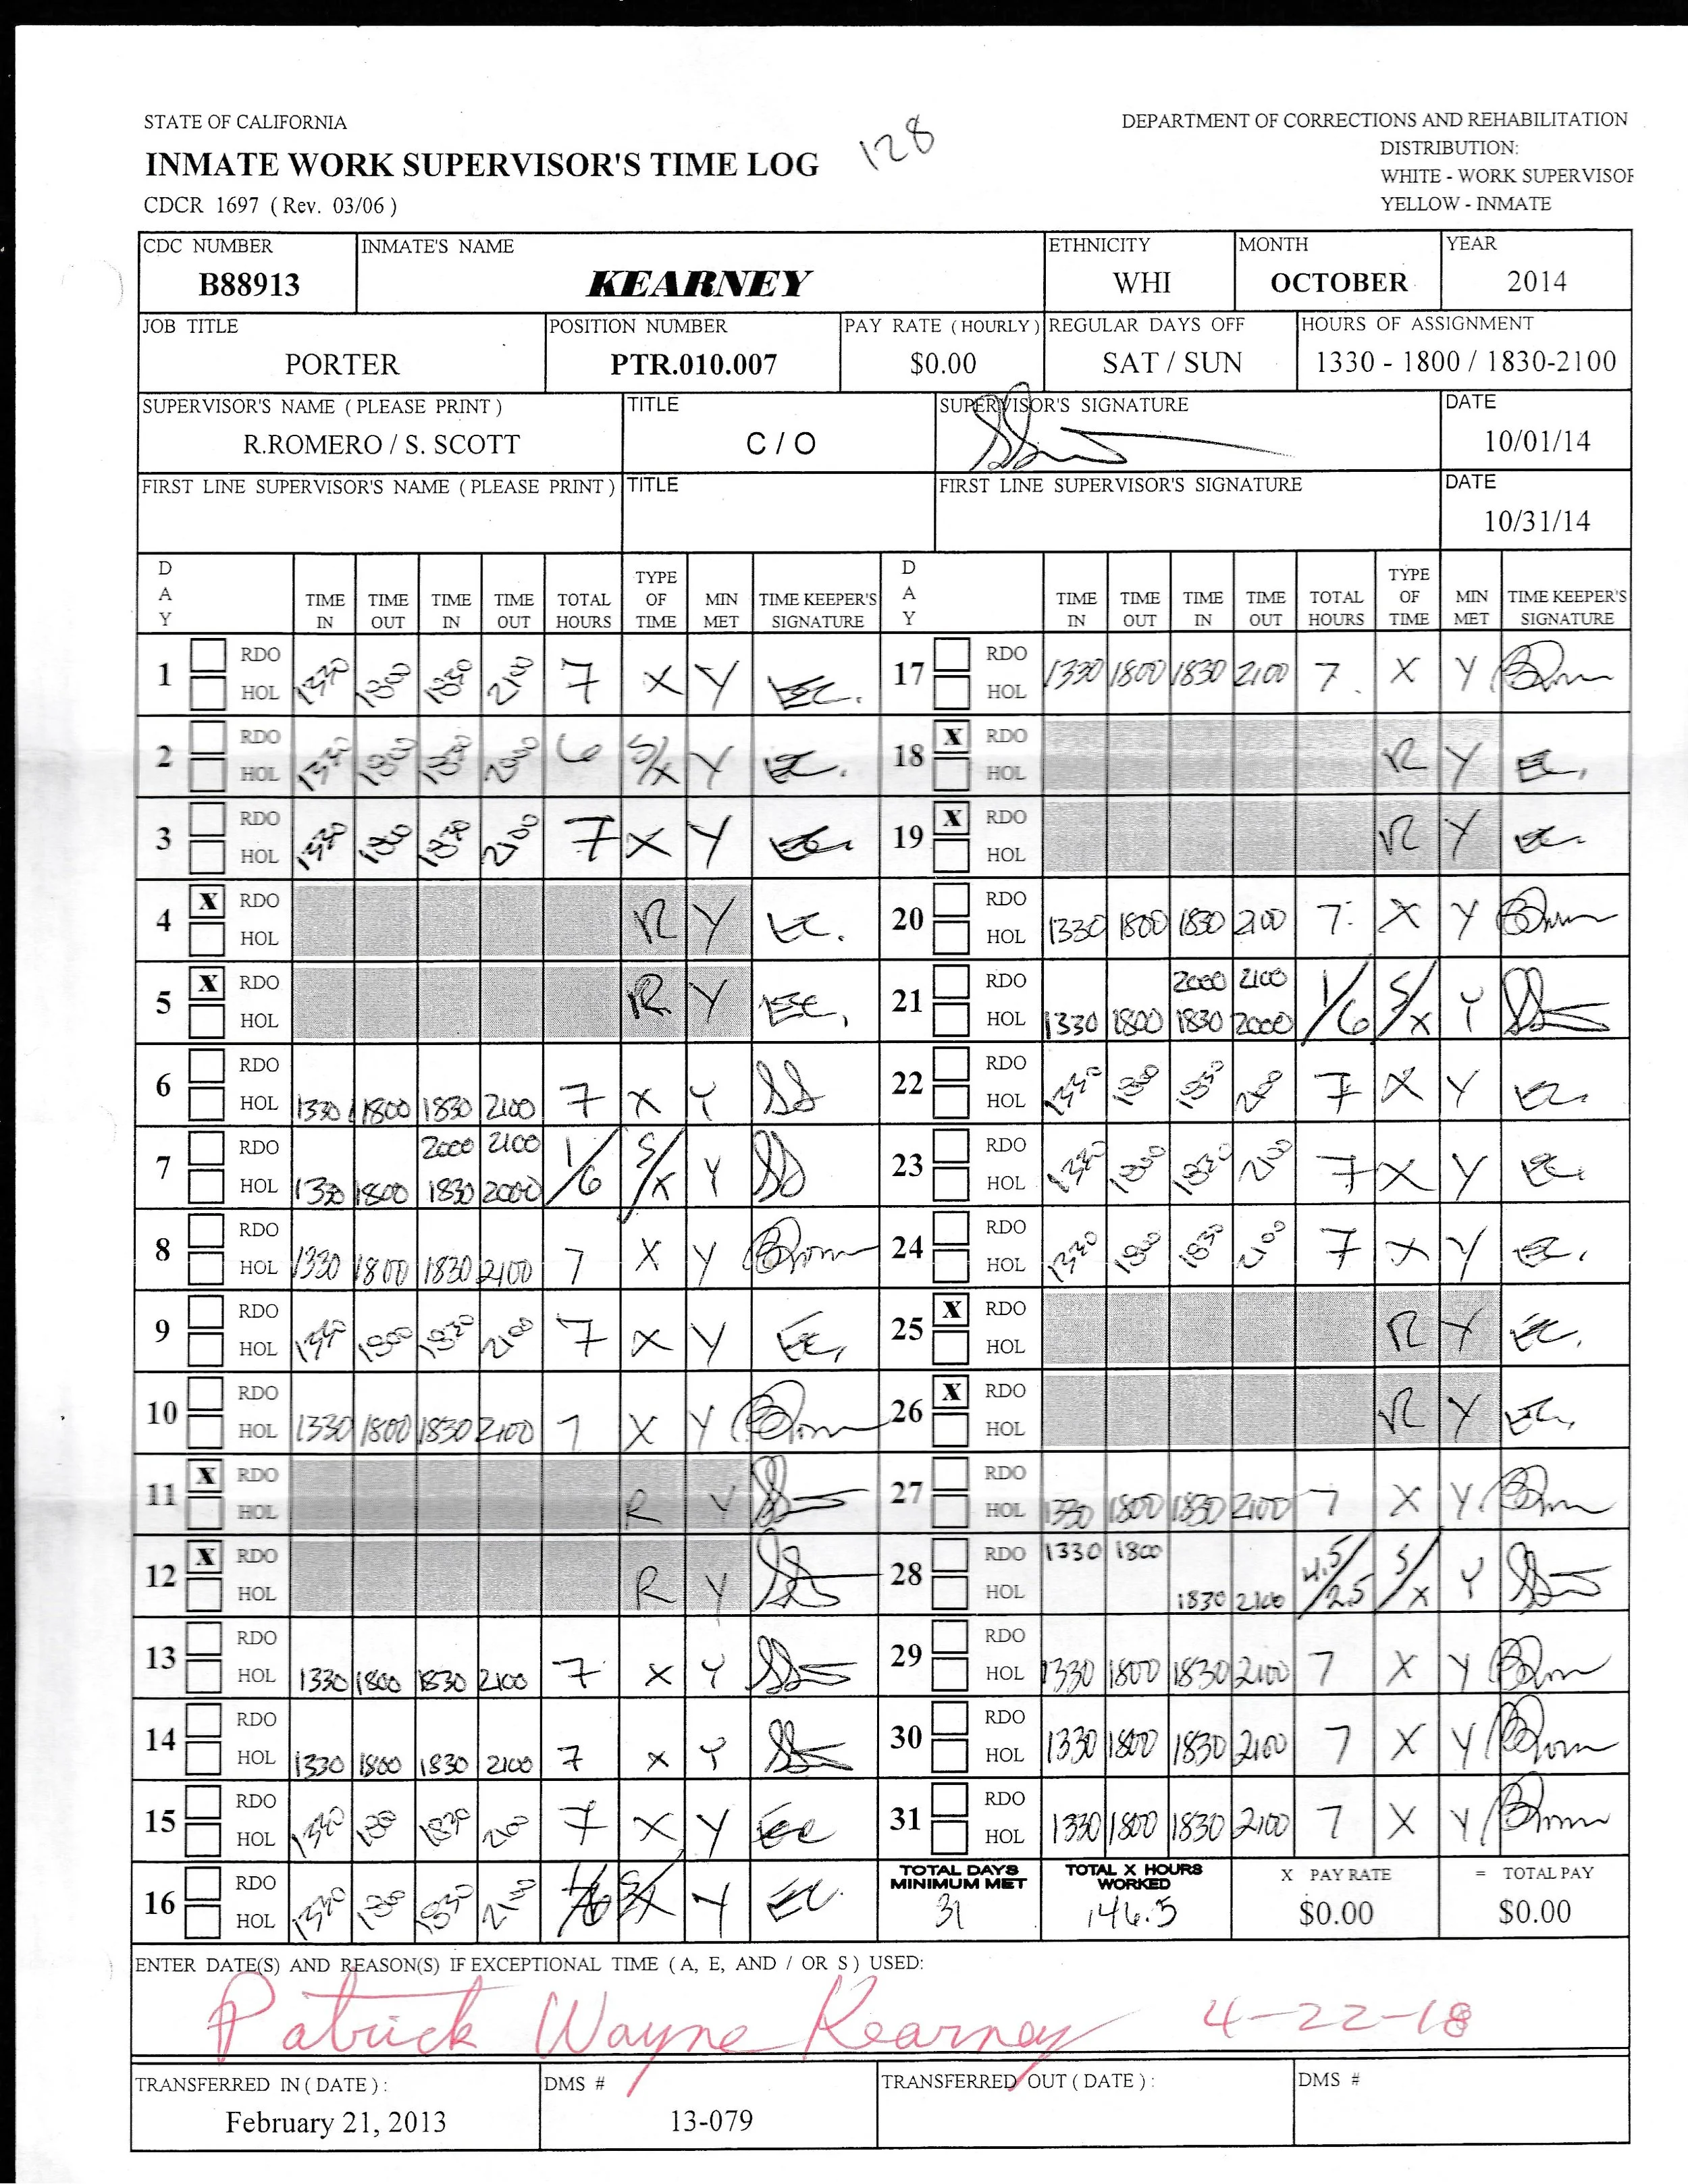 STATE OF CALIFORNIA
128
DEPARTMENT OF CORRECTIONS AND REHABILITATION
INMATE WORK SUPERVISOR'S TIME LOG
DISTRIBUTION:
WHITE - WORK SUPERVISOR
CDCR 1697 ( Rev. 03/06 )
YELLOW - INMATE
CDC NUMBER INMATE'S NAME ETHNICITY MONTH YEAR
B88913 KEARNEY WHI OCTOBER 2014
JOB TITLE POSITION NUMBER PAY RATE ( HOURLY ) REGULAR DAYS OFF HOURS OF ASSIGNMENT
PORTER PTR.010.007 $0.00 SAT / SUN 1330 - 1800 / 1830-2100
SUPERVISOR'S NAME ( PLEASE PRINT ) TITLE SUPERVISOR'S SIGNATURE DATE
R.ROMERO / S. SCOTT C / O 10/01/14
FIRST LINE SUPERVISOR'S NAME ( PLEASE PRINT ) TITLE FIRST LINE SUPERVISOR'S SIGNATURE DATE
10/31/14
DAY TIME IN TIME OUT TIME IN TIME OUT TOTAL HOURS TYPE OF TIME MIN MET TIME KEEPER'S SIGNATURE DAY TIME IN TIME OUT TIME IN TIME OUT TOTAL HOURS TYPE OF TIME MIN MET TIME KEEPER'S SIGNATURE
1 RDO HOL 1330 1800 1830 2100 7 X Y EC. 17 RDO HOL 1330 1800 1830 2100 7 X Y
2 RDO HOL 1330 1800 1830 2000 6 S/X Y EC. 18 X RDO HOL R Y EC.
3 RDO HOL 1330 1800 1830 2100 7 X Y EC. 19 X RDO HOL R Y EC.
4 X RDO HOL R Y EC. 20 RDO HOL 1330 1800 1830 2100 7 X Y
5 X RDO HOL R Y EC. 21 RDO HOL 2000 2100 1330 1800 1830 2000 1/6 S/X Y
6 RDO HOL 1330 1800 1830 2100 7 X Y SS 22 RDO HOL 1330 1800 1830 2100 7 X Y EC.
7 RDO HOL 2000 2100 1330 1800 1830 2000 1/6 S/X Y SS 23 RDO HOL 1330 1800 1830 2100 7 X Y EC.
8 RDO HOL 1330 1800 1830 2100 7 X Y 24 RDO HOL 1330 1800 1830 2100 7 X Y EC.
9 RDO HOL 1330 1800 1830 2100 7 X Y EC. 25 X RDO HOL R Y EC.
10 RDO HOL 1330 1800 1830 2100 7 X Y 26 X RDO HOL R Y EC.
11 X RDO HOL R Y 27 RDO HOL 1330 1800 1830 2100 7 X Y
12 X RDO HOL R Y 28 RDO HOL 1330 1800 1830 2100 4.5/2.5 S/X Y
13 RDO HOL 1330 1800 1830 2100 7 X Y 29 RDO HOL 1330 1800 1830 2100 7 X Y
14 RDO HOL 1330 1800 1830 2100 7 X Y 30 RDO HOL 1330 1800 1830 2100 7 X Y
15 RDO HOL 1330 1800 1830 2100 7 X Y EC 31 RDO HOL 1330 1800 1830 2100 7 X Y
16 RDO HOL 1330 1800 1830 2100 1/6 S/X Y EC. TOTAL DAYS MINIMUM MET 31 TOTAL X HOURS WORKED 146.5 X PAY RATE $0.00 = TOTAL PAY $0.00
ENTER DATE(S) AND REASON(S) IF EXCEPTIONAL TIME ( A, E, AND / OR S ) USED:
Patrick Wayne Kearney 4-22-18
TRANSFERRED IN ( DATE ) : DMS # TRANSFERRED OUT ( DATE ) : DMS #
February 21, 2013 13-079